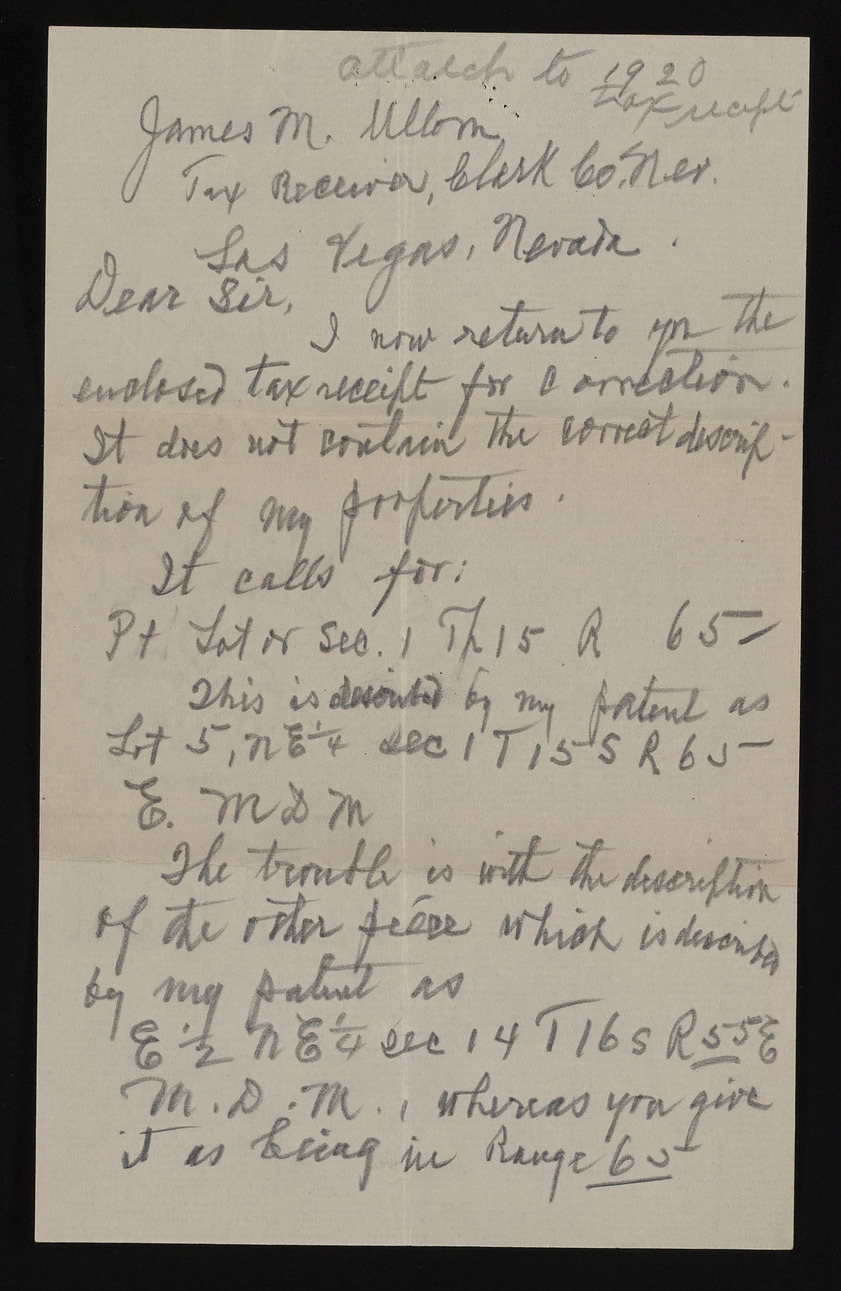 attatch to 1920
tax receipt
James M. Ullom
Tax Receiver, Clark Co. Nev.
Las Vegas, Nevada.
Dear Sir,
I now return to you the
enclosed tax receipt for correction.
It does not contain the correct descrip-
tion of my properties.
It calls for:
Pt Lot or Sec. 1 Tp 15 R 65
This is described by my patent as
Lot 5, NE 1/4 sec 1 T 15 S R 65
E. M D M
The trouble is with the description
of the other piece which is described
by my patent as
E 1/2 NE 1/4 sec 14 T 16 S R 55 E
M. D. M., whereas you give
it as being in Range 65